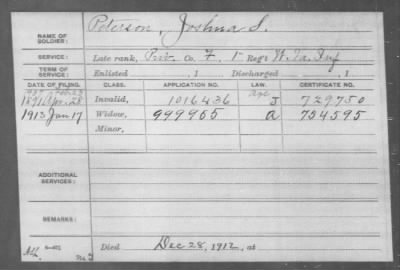 NAME OF SOLDIER: Peterson, Joshua S.
SERVICE: Late rank, Priv Co. F, 1 Reg't W. Va. Inf
TERM OF SERVICE: Enlisted , 1 Discharged , 1
DATE OF FILING. CLASS. APPLICATION NO. LAW. CERTIFICATE NO.
1891 Apr. 28 Invalid, 1016436 J 729750
1913 Jan 17 Widow, 999965 a 754595
Minor,
ADDITIONAL SERVICES:
REMARKS:
Died Dec 28, 1912, at